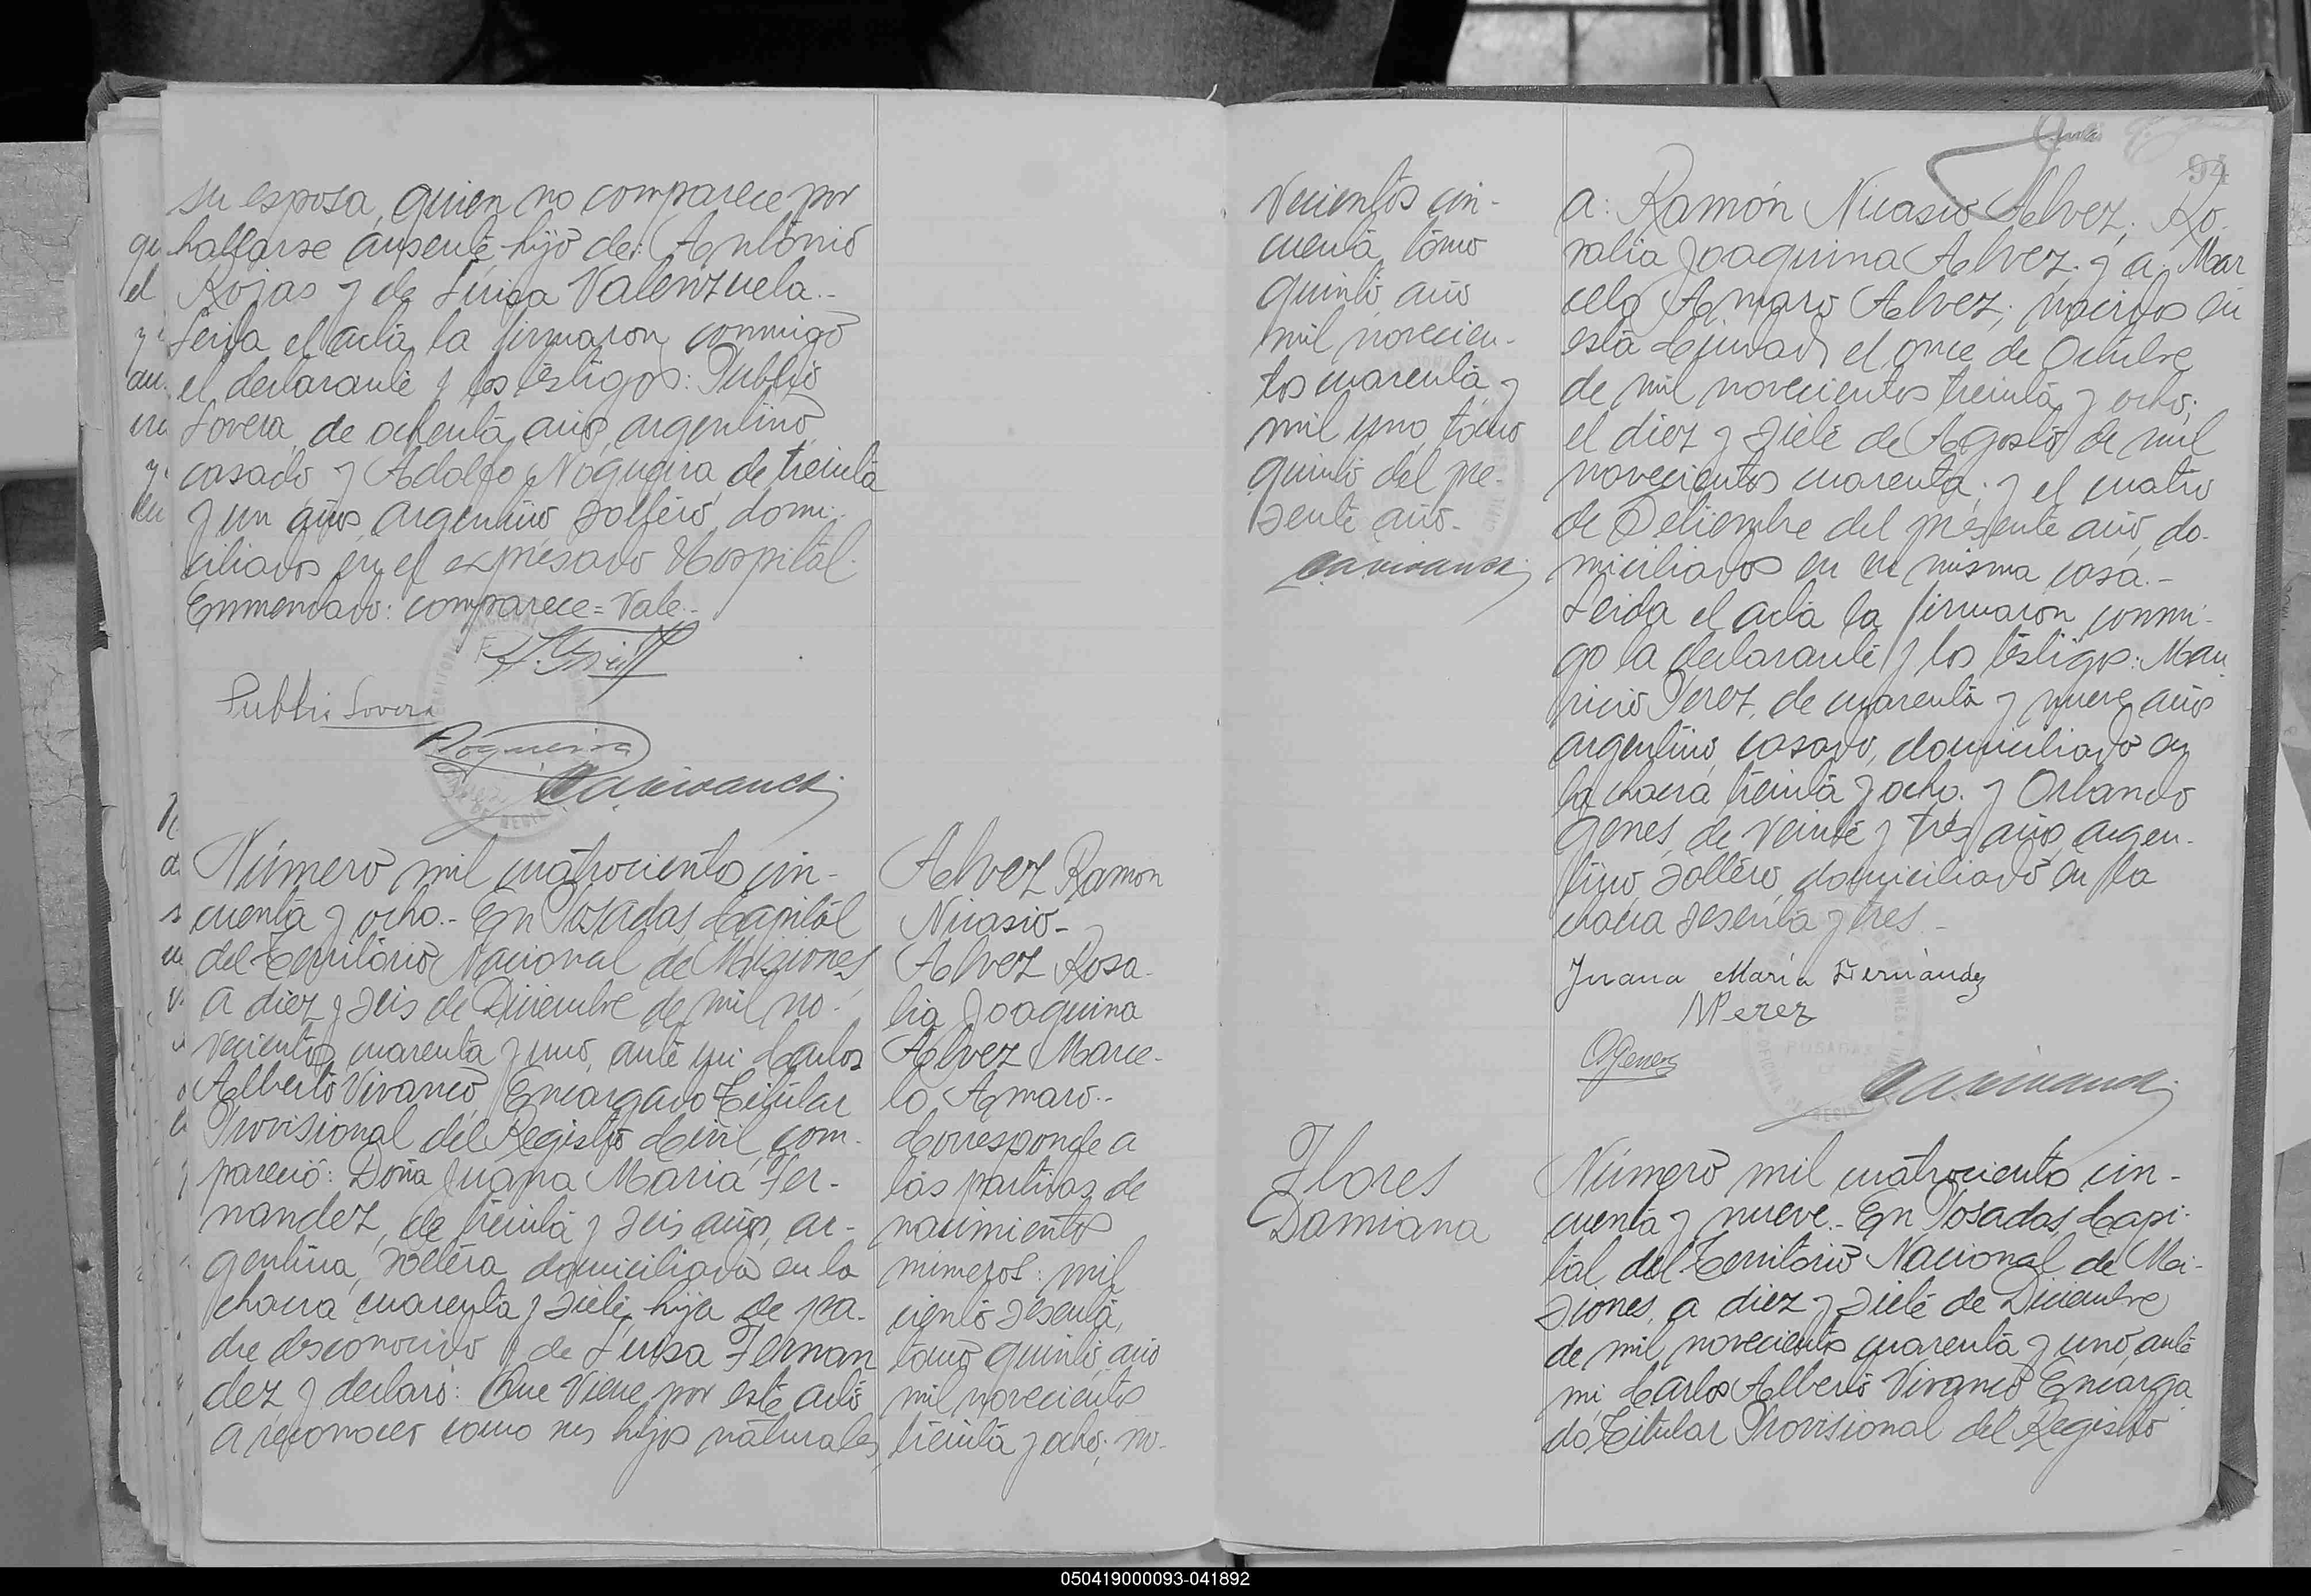 su esposa, quien no comparece por
hallarse ausente, hijo de: Antonio
Rojas y de Luisa Valenzuela.-
Leida el acta la firmaron conmigo
el declarante y los testigos: Publio
Lovera, de ochenta años, argentino
casado y Adolfo Nogueira, de treinta
y un años, argentino, soltero, domi-
ciliados en el expresado Hospital.
Enmendado: comparece = Vale.-
Publio Lovera
ANogueira
CAVivanco
Número mil cuatrociento cin-
cuenta y ocho.- En Posadas, Capital
del Territorio Nacional de Misiones,
a diez y seis de Diciembre de mil no-
vecientos cuarenta y uno, ante mi Carlos
Alberto Vivanco Encargado Titular
Provisional del Registro Civil, com-
pareció: Doña Juana Maria Fer-
nandez, de treinta y seis años, ar-
gentina, soltera, domiciliada en la
chacra cuarenta y siete, hija de pa-
dre desconocido y de Luisa Fernan
dez y declaró: Que viene por este acto
a reconocer como sus hijos naturales,
Alvez Ramon
Nicasio-
Alvez Rosa-
lia Joaquina
Alvez Marce-
lo Amaro.-
Corresponde a
las partidas de
nacimiento
números: mil
ciento sesenta,
tomo quinto, año
mil novecientos
treinta y ocho; no-
vecientos cin-
cuenta, tomo
quinto, año
mil novecien-
tos cuarenta y
mil uno, tomo
quinto del pre-
sente año.-
CAVivanco
94
a: Ramón Nicasio Alvez; Ro-
salia Joaquina Alvez; y a Mar
celo Amaro Alvez; nacidos en
esta Ciudad, el once de Octubre
de mil novecientos treinta y ocho;
el diez y siete de Agosto de mil
novecientos cuarenta; y el cuatro
de Setiembre del presente año, do-
miciliados en su misma casa.-
Leida el acta la firmaron conmi-
go la declarante y los testigos: Mau
ricio Perez, de cuarenta y nueve años
argentino, casado, domiciliado en
la chacra treinta y ocho. y Orlando
Genes, de veinte y tres años, argen-
tino, soltero, domiciliado en la
chacra sesenta y tres.-
Juana Maria Fernández
MPerez
OGenes
CAVivanco
Flores
Damiana
Número mil cuatrociento cin-
cuenta y nueve.- En Posadas, Capi-
tal del Territorio Nacional de Mi-
siones, a diez y siete de Diciembre
de mil novecientos cuarenta y uno, ante
mi Carlos Alberto Vivanco Encarga
do Titular Provisional del Registro
050419000093-041892